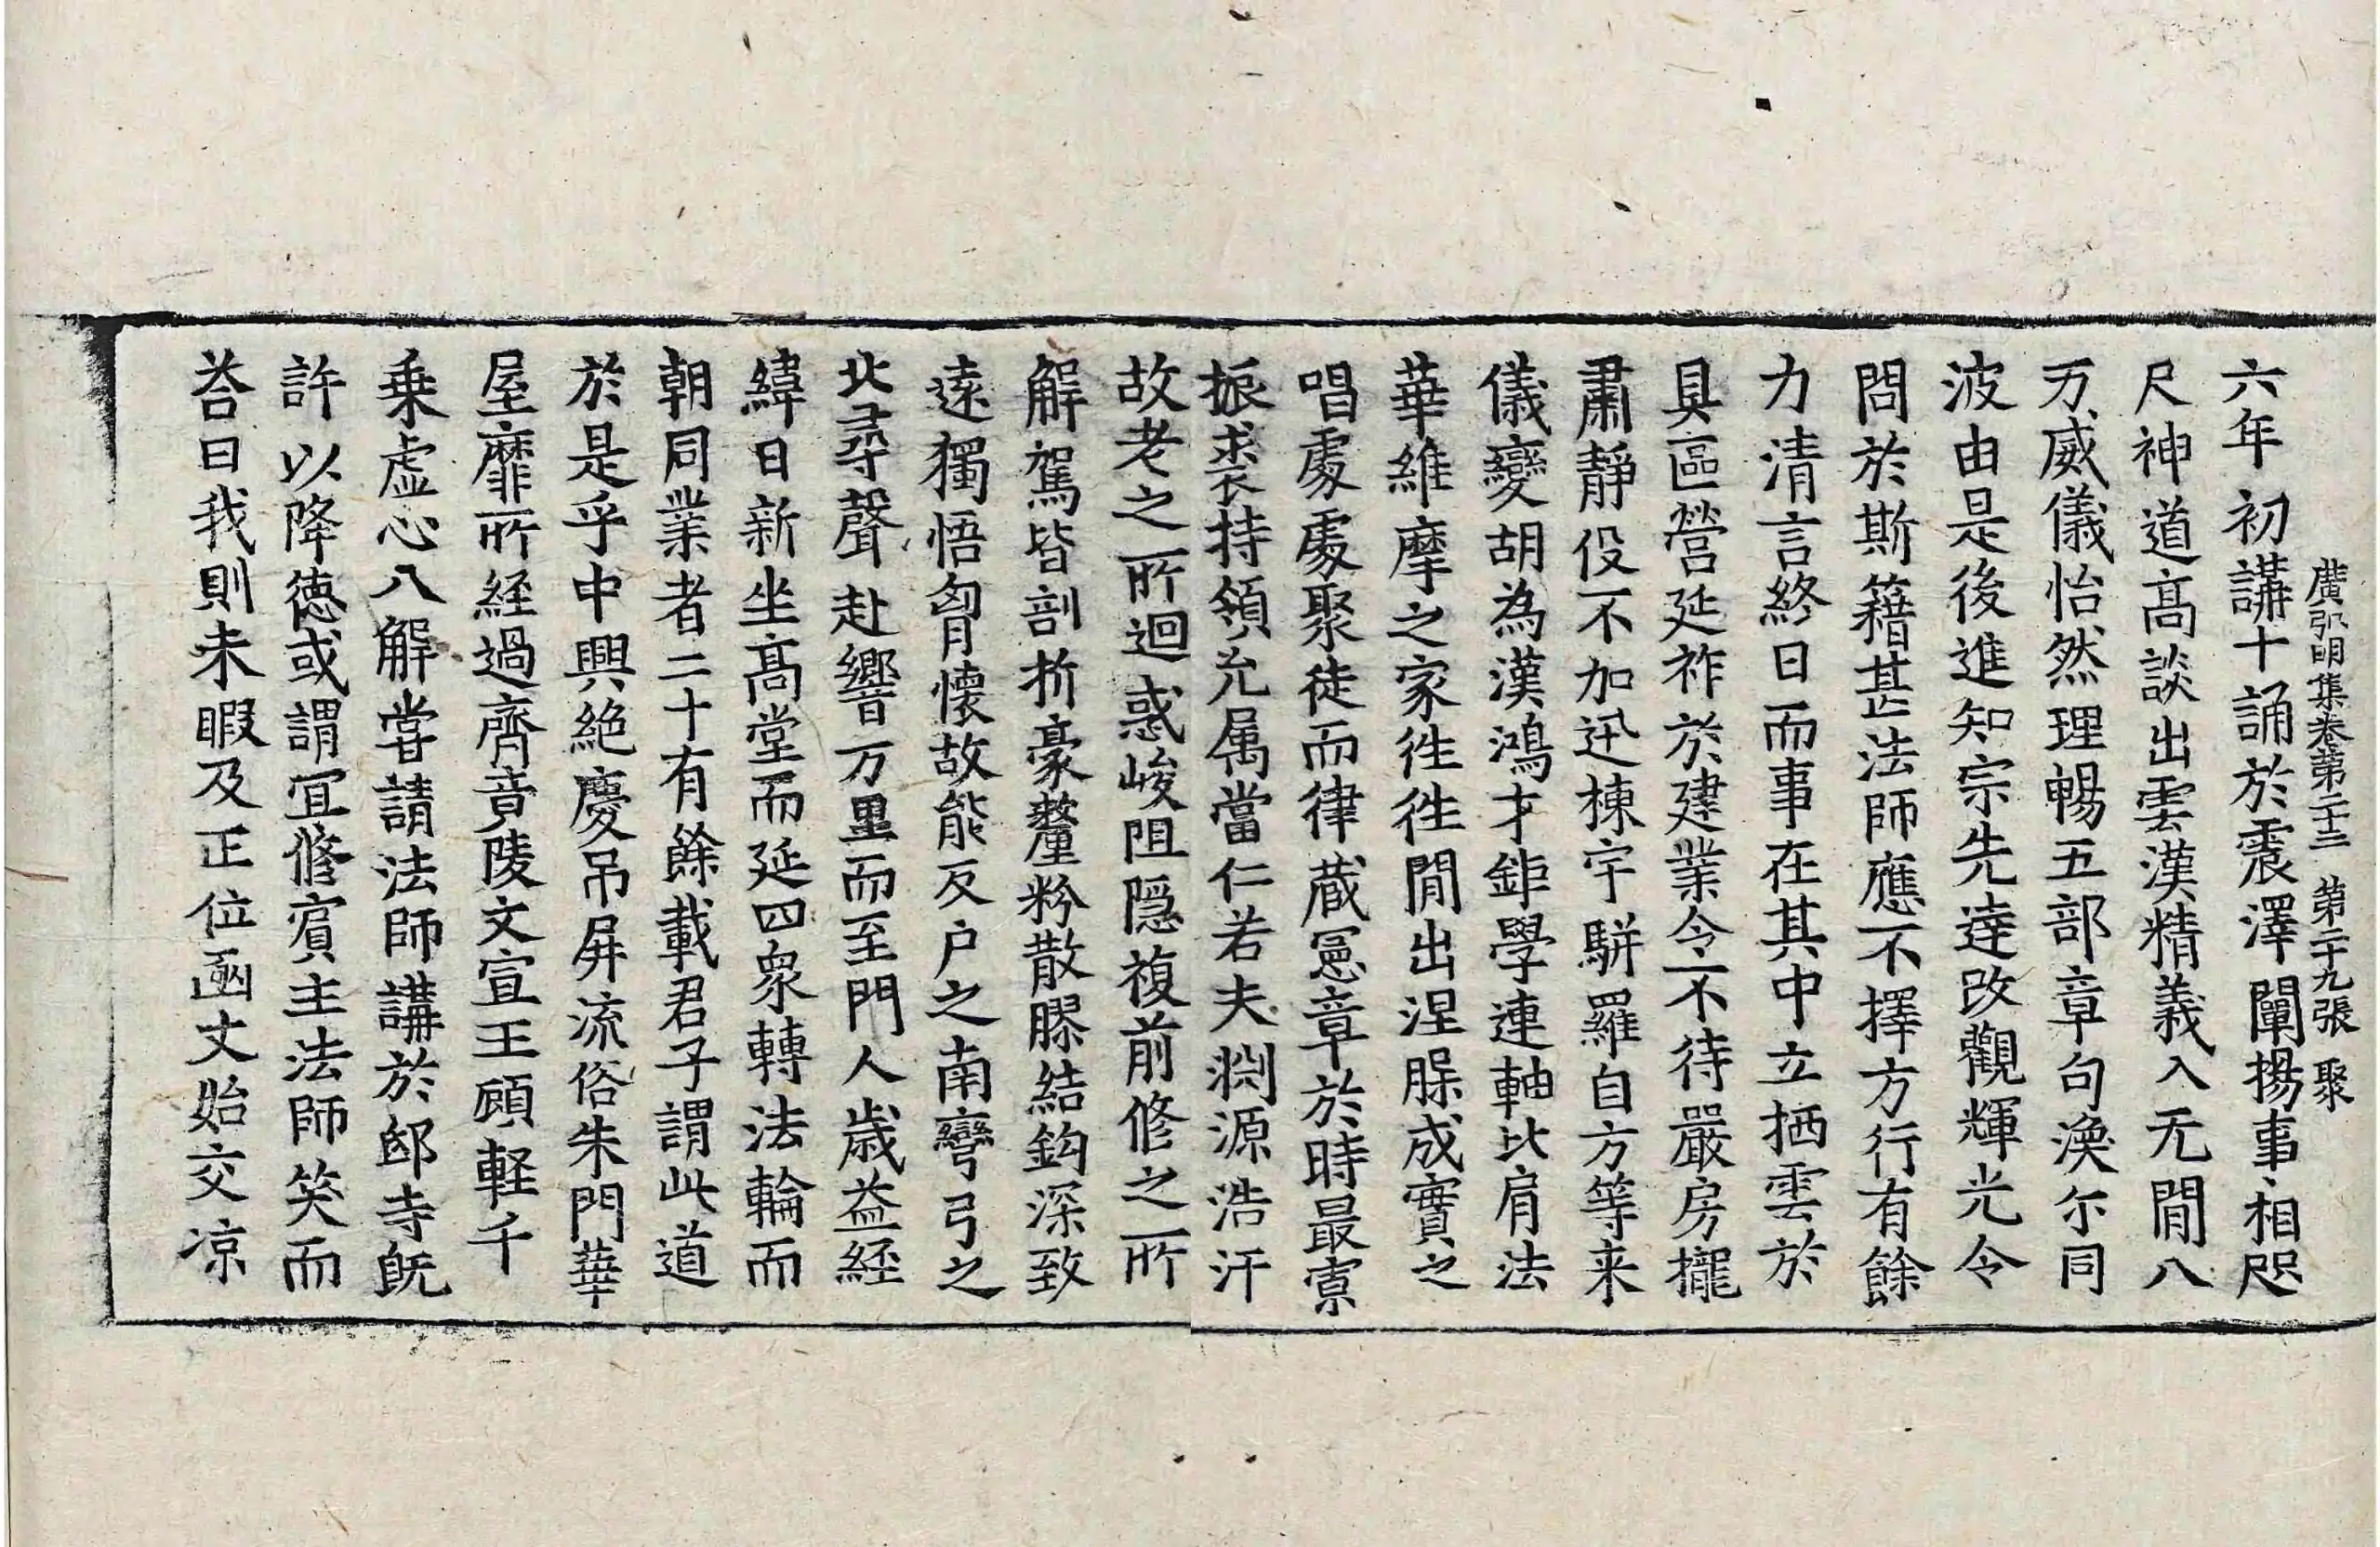 廣弘明集卷第二十三 第二十九張 聚
六年初講十誦於震澤闡揚事相咫
尺神道高談出雲漢精義入无閒八
万威儀怡然理暢五部章句渙尓同
波由是後進知宗先逹改觀輝光令
問於斯籍甚法師應不擇方行有餘
力清言終日而事在其中立栖雲於
具區營延祚於建業令不待嚴房櫳
肅靜役不加迅棟宇駢羅自方等来
儀變胡為漢鴻才鉅學連軸比肩法
華維摩之家徃徃閒出涅脵成實之
唱處處聚徒而律蔵憲章於時最寡
振裘持領允属當仁若夫渊源浩汗
故老之所迴惑峻阻隠複前修之所
解駕皆剖析豪釐粉散膠結鈎深致
遠獨悟胷懷故能反户之南彎弓之
北尋聲赴響万里而至門人歲益経
緯日新坐高堂而延四衆轉法輪而
朝同業者二十有餘載君子謂此道
於是乎中興絶慶吊屏流俗朱門華
屋靡所経過齊竟陵文宣王顧軽千
乗虚心八解甞請法師講於邸寺旣
許以降德或謂冝修賔主法師笑而
荅曰我則未暇及正位函丈始交凉